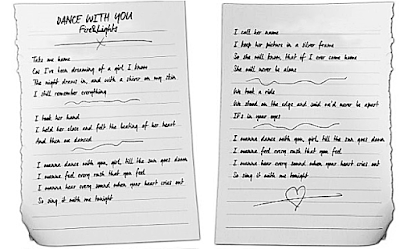 DANCE WITH YOU
Fire&Lights
Take me home
Cos I've been dreaming of a girl I know
The night draws in, and with a shiver on my skin
I still remember everything
I took her hand
I held her close and felt the beating of her heart
And then we danced
I wanna dance with you, girl, till the sun goes down
I wanna feel every rush that you feel
I wanna hear every sound when your heart cries out
So sing it with me tonight
I call her name
I keep her picture in a silver frame
So she will know, that if I ever come home
She will never be alone
We took a ride
We stood on the edge and said we'd never be apart
It's in your eyes
I wanna dance with you, girl, till the sun goes down
I wanna feel every rush that you feel
I wanna hear every sound when your heart cries out
So sing it with me tonight